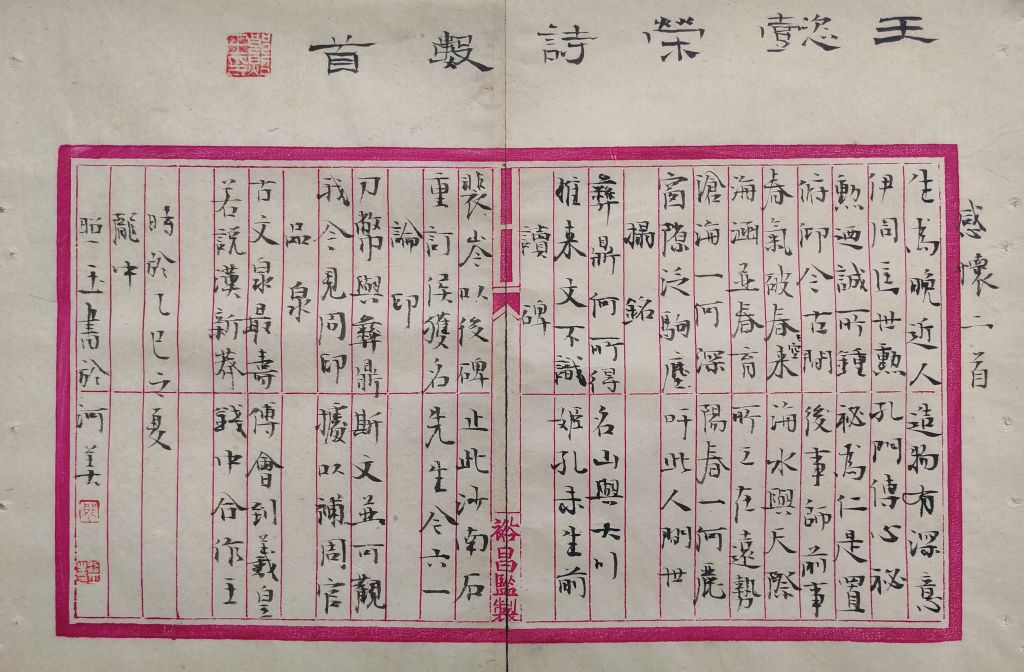 王懿榮詩數首
感懷二首
生爲晚近人 造物有深意
伊周匡世勲 孔門傳心祕
勲迺誠所鍾 祕爲仁是置
俯仰今古間 後事師前事
春氣破春來 空 海水與天際
海涵並春育 所立在遠勢
滄海一何深 陽春一何麗
窗隙泛駒塵 吁此人間世
搨銘
彝鼎何所得 名山與大川
推來文不識 姬孔未生前
讀碑
裴岑以後碑 止此沙南石
重訂侯獲名 先生今六一
論印
刀幣與彝鼎 斯文並可觀
我今見周印 據以補周官
品泉
古文泉最壽 傅會到羲皇
若説漢新莽 錢中合作王
時於乙巳之夏
龐中
昭玉書於河美
裕昌監製